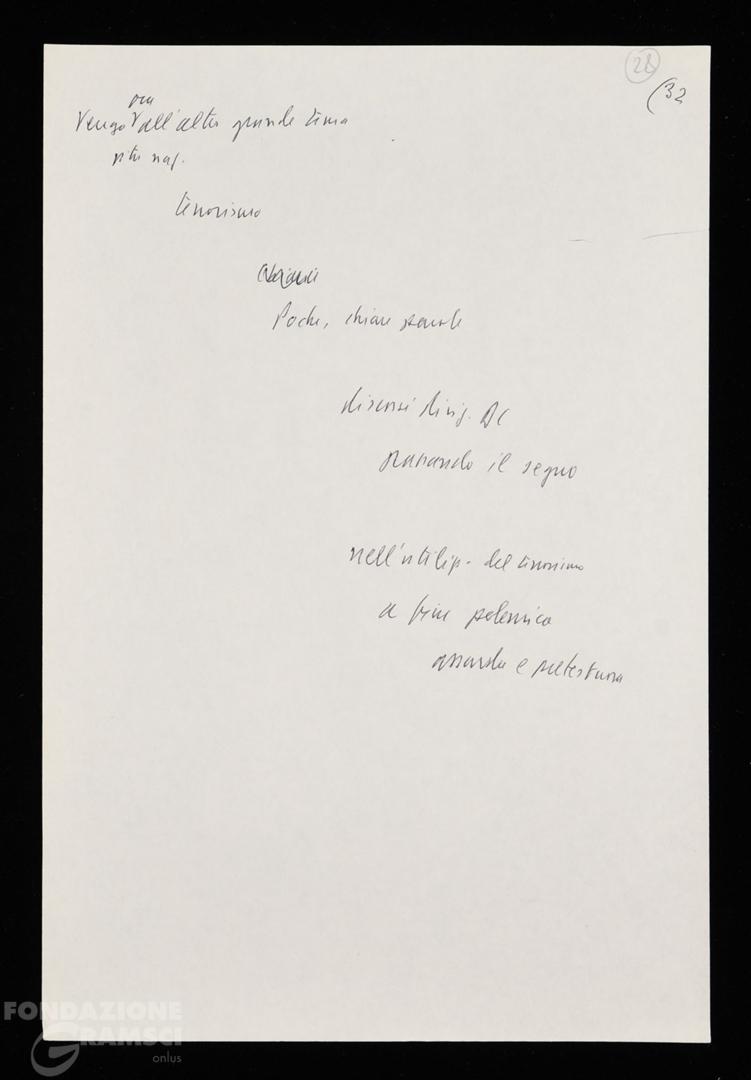 28
(32
ora
Vengo all'altro grande tema
vita naz.
terrorismo
Poche, chiare parole
discorsi dirig. DC
passando il segno
nell'utiliz. del terrorismo
a fine polemica
assurda e pretestuosa
FONDAZIONE
GRAMSCI
onlus